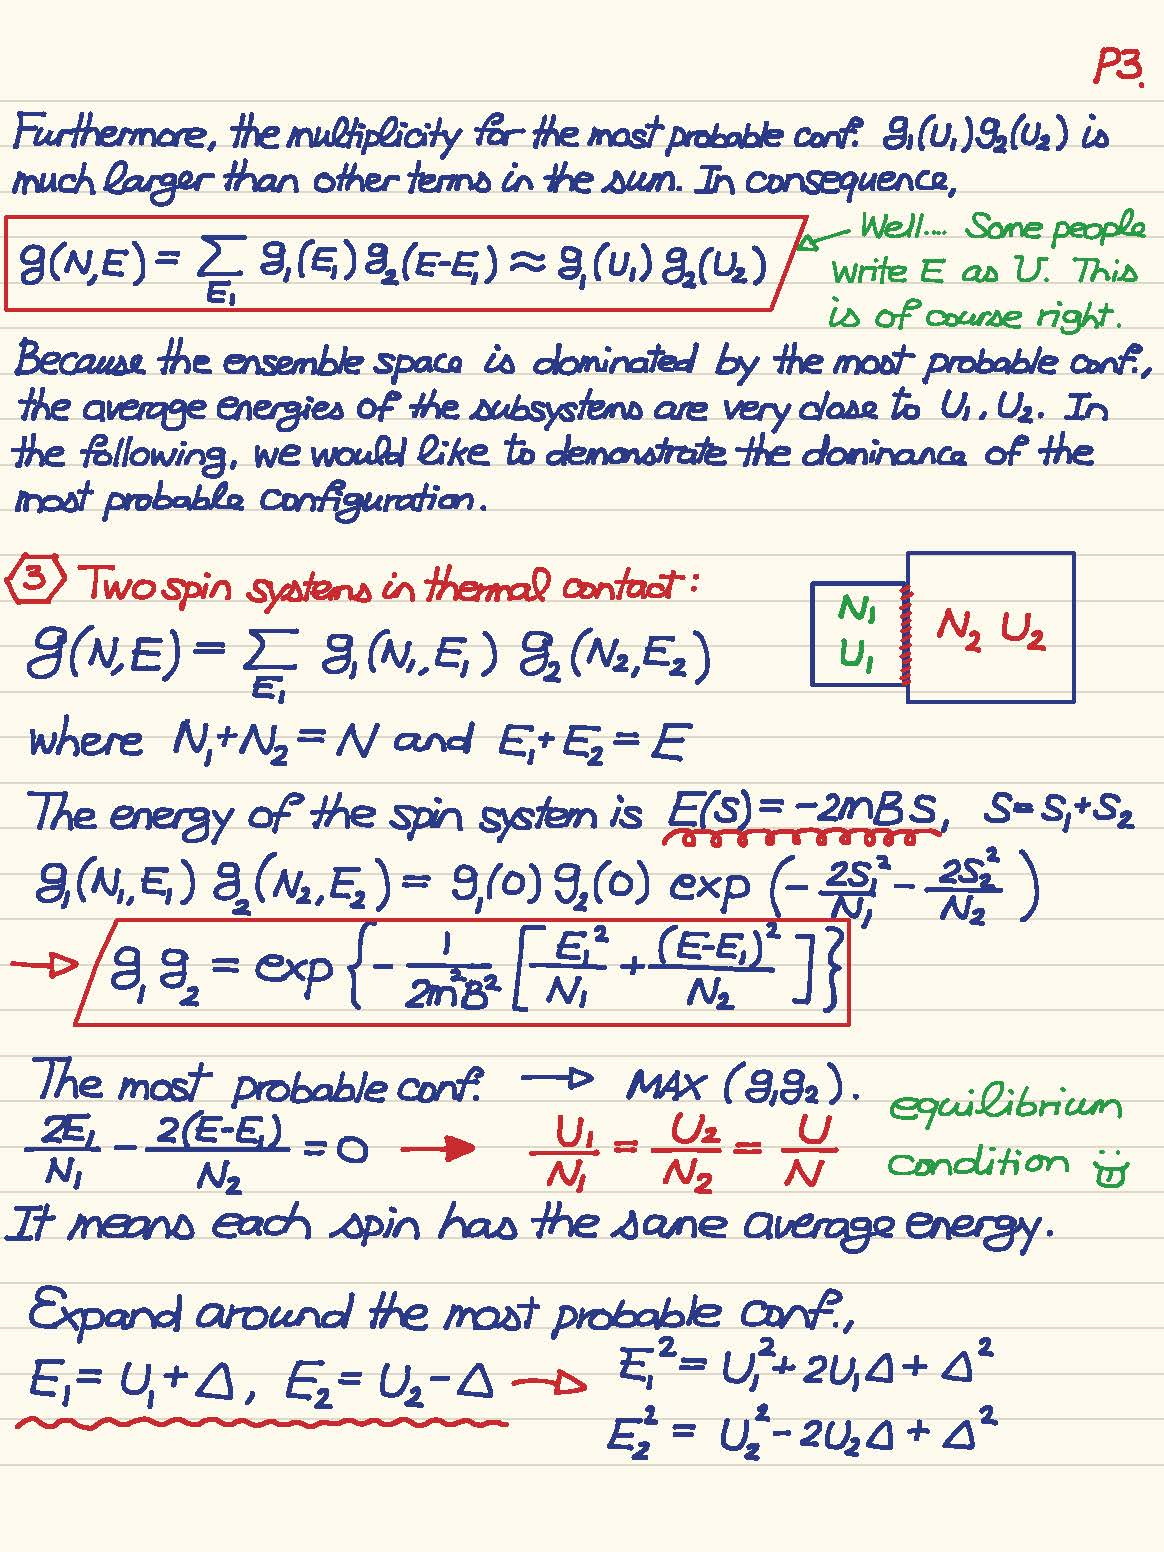 P3.
Furthermore, the multiplicity for the most probable conf. g₁(U₁)g₂(U₂) is
much larger than other terms in the sum. In consequence,
g(N,E) = ∑_{E₁} g₁(E₁) g₂(E-E₁) ≈ g₁(U₁) g₂(U₂)
Well.... Some people
write E as U. This
is of course right.
Because the ensemble space is dominated by the most probable conf.,
the average energies of the subsystems are very close to U₁, U₂. In
the following, we would like to demonstrate the dominance of the
most probable configuration.
3 Two spin systems in thermal contact:
N₁
U₁
N₂ U₂
g(N,E) = ∑_{E₁} g₁(N₁,E₁) g₂(N₂,E₂)
where N₁+N₂ = N and E₁+E₂ = E
The energy of the spin system is E(s) = -2mBs, s=s₁+s₂
g₁(N₁,E₁) g₂(N₂,E₂) = g₁(0) g₂(0) exp(-2S₁²/N₁ - 2S₂²/N₂)
→ g₁ g₂ = exp{-1/2m²B² [E₁²/N₁ + (E-E₁)²/N₂]}
The most probable conf. → MAX (g₁g₂).
2E₁/N₁ - 2(E-E₁)/N₂ = 0 → U₁/N₁ = U₂/N₂ = U/N
equilibrium
condition
It means each spin has the same average energy.
Expand around the most probable conf.,
E₁ = U₁ + Δ, E₂ = U₂ - Δ → E₁² = U₁² + 2U₁Δ + Δ²
E₂² = U₂² - 2U₂Δ + Δ²